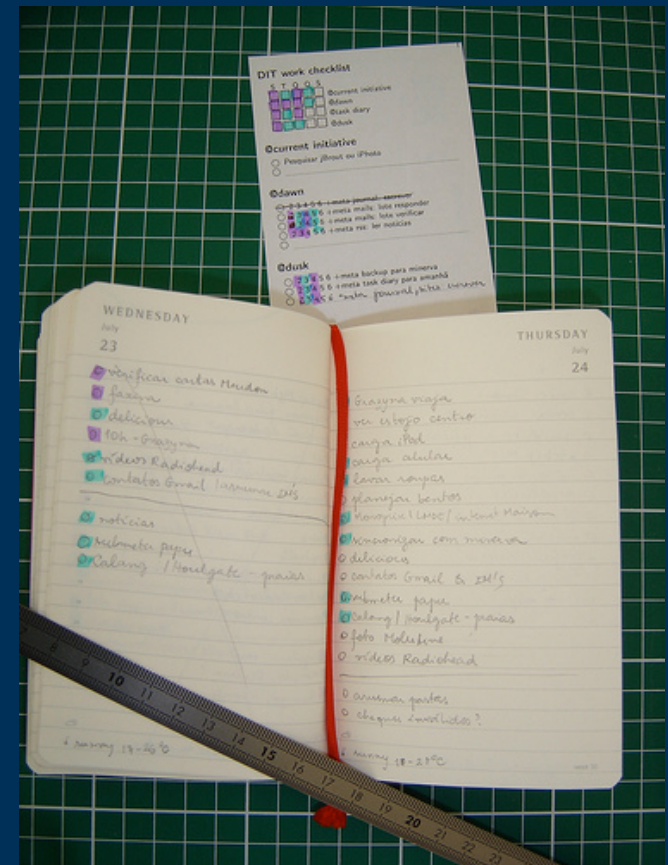 DIT work checklist
S T Q Q S
@current initiative
@dawn
@task diary
@dusk
@current initiative
Pesquisar jBrout ou iPhoto
@dawn
2 3 4 5 6 +meta journal: escrever
+meta mails: lote responder
+meta mails: lote verificar
+meta rss: ler notícias
@dusk
2 3 4 5 6 +meta backup para minerva
2 3 4 5 6 +meta task diary para amanhã
WEDNESDAY
July
23
verificar cartas Meudon
faxina
delicious
10h - Grazyna
vídeos Radiohead
contatos Gmail IM's
notícias
submeter paper
Calang / Houlgate - praias
sunny
THURSDAY
July
24
Grazyna viaja
ver estojo centro
carga iPod
carga celular
lavar roupas
planejar bentos
Monoprix
sincronizar com minerva
delicious
contatos Gmail & IM's
submeter paper
Calang / Houlgate - praias
foto Moleskine
vídeos Radiohead
arrumar pastas
cheques inválidos?
sunny
7 8 9 10 11 12 13 14 15 16 17 18 19 20 21 22 23